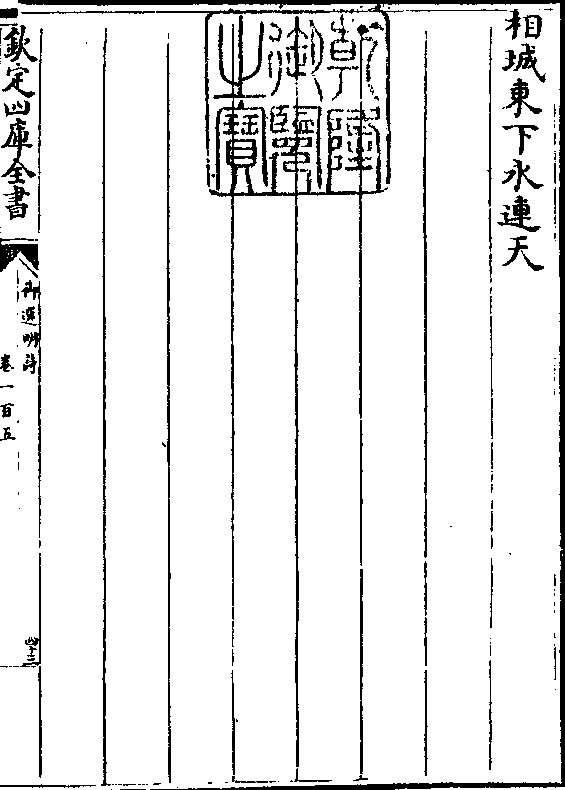 相城東下水連天
乾隆
御覽
之寶
欽定四庫全書
御選明詩
卷一百五
四十三